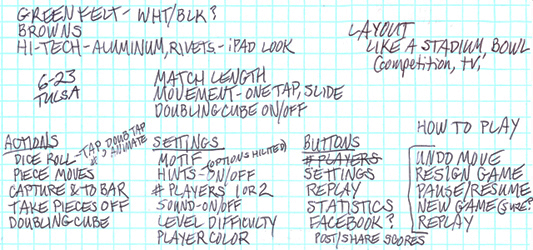 GREEN FELT - WHT/BLK?
BROWNS
HI-TECH - ALUMINUM, RIVETS - iPAD LOOK
LAYOUT
LIKE A STADIUM, BOWL
Competition, tv,
6-23
TULSA
MATCH LENGTH
MOVEMENT - ONE TAP, SLIDE
DOUBLING CUBE ON/OFF
ACTIONS
DICE ROLL - TAP, DOUB TAP
or, ANIMATE
PIECE MOVES
CAPTURE & TO BAR
TAKE PIECES OFF
DOUBLING CUBE
SETTINGS
MOTIF
HINTS - ON/OFF (OPTIONS HILITED)
# PLAYERS 1 OR 2
SOUND - ON/OFF
LEVEL DIFFICULTY
PLAYER COLOR
BUTTONS
# PLAYERS
SETTINGS
REPLAY
STATISTICS
FACEBOOK?
POST/SHARE SCORES
HOW TO PLAY
UNDO MOVE
RESIGN GAME
PAUSE/RESUME
NEW GAME (SURE?)
REPLAY